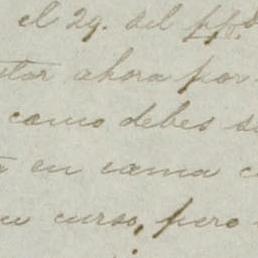 el 29. del ppdo
tar ahora por
como debes s
en cama c
su curso, pero